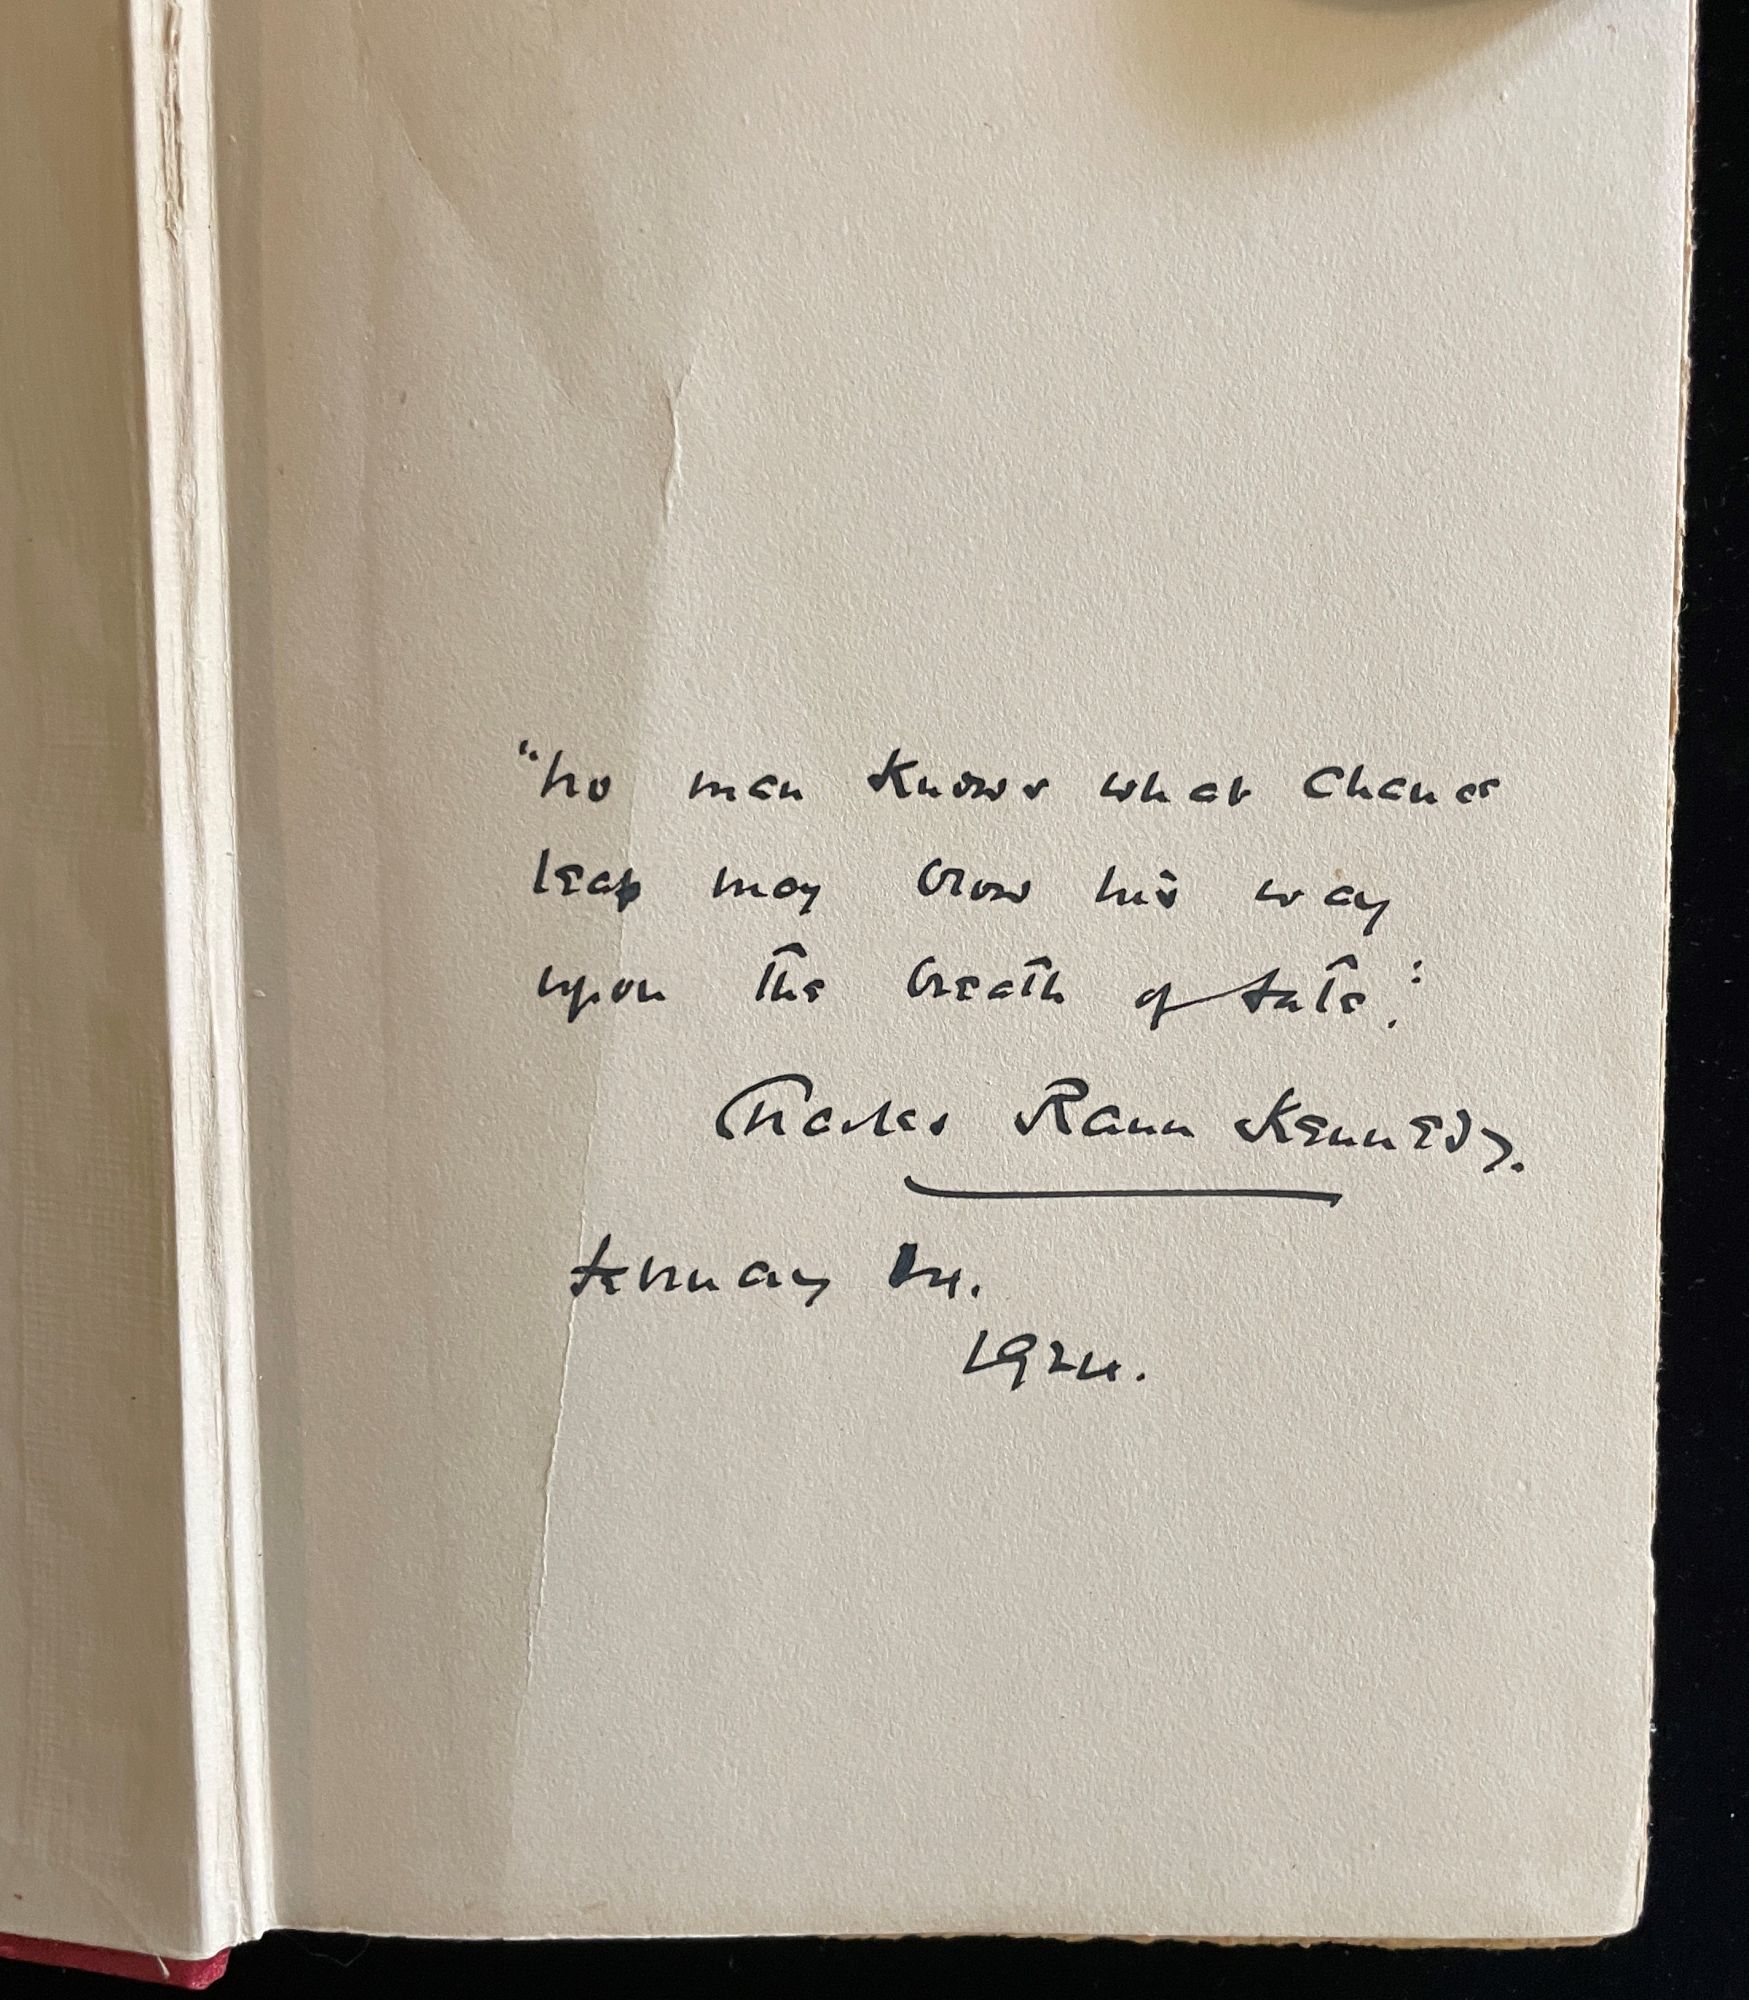 "No man knows what chance
leaf may blow his way
upon the breath of fate."
Charles Rann Kennedy.
February
1924.